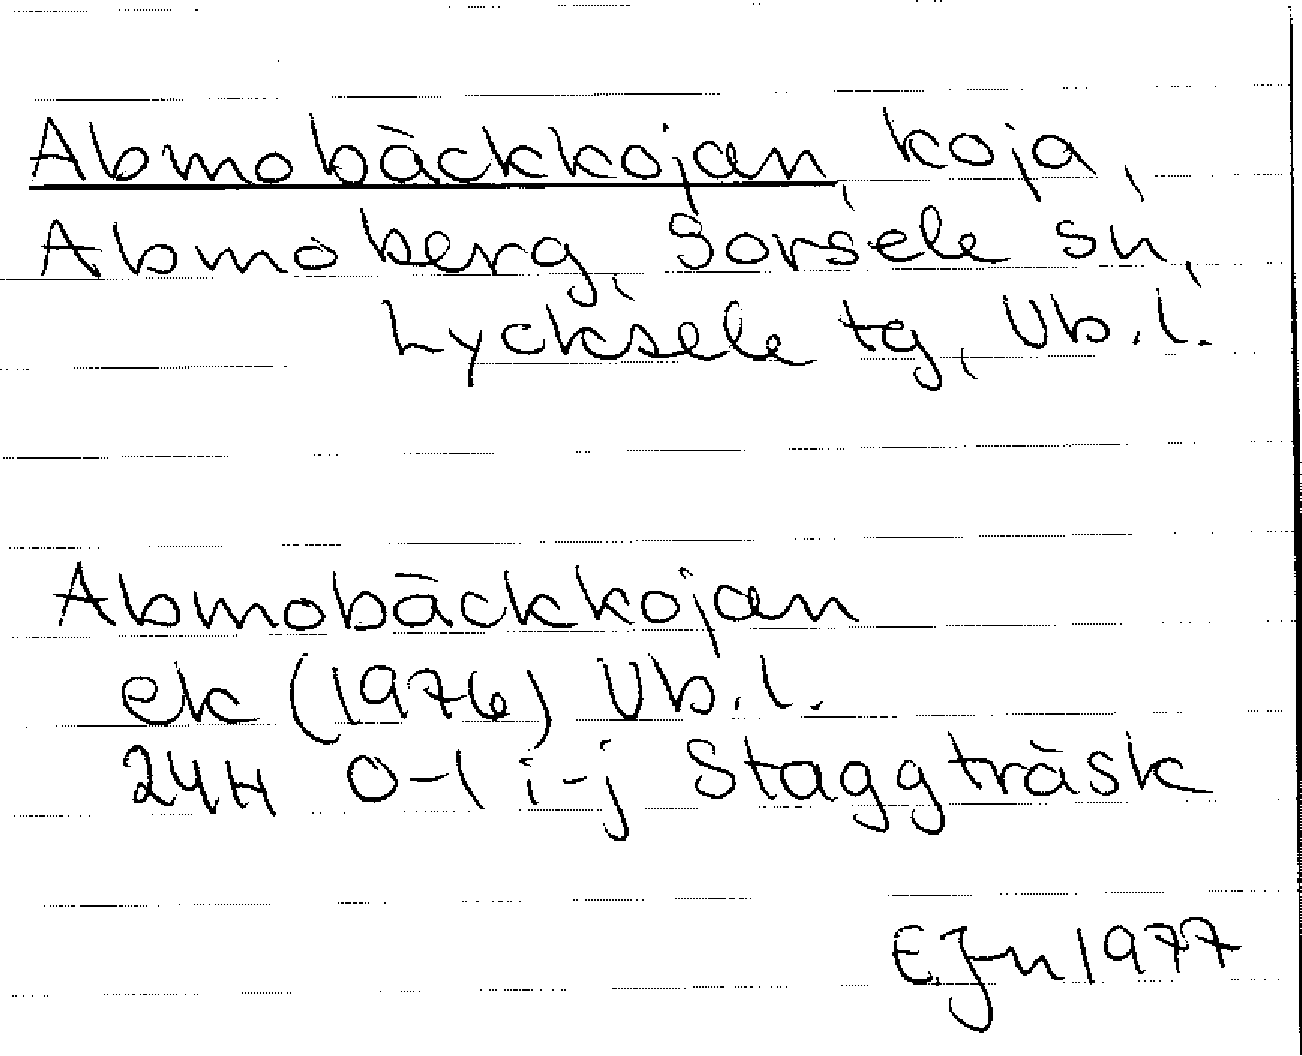 Abmobäckkojan, koja,
Abmoberg, Sorsele sn,
Lycksele tg, Vb.l.
Abmobäckkojan
ek (1976) Vb.l.
24H 0-1 i-j Staggträsk
E.J-n 1977